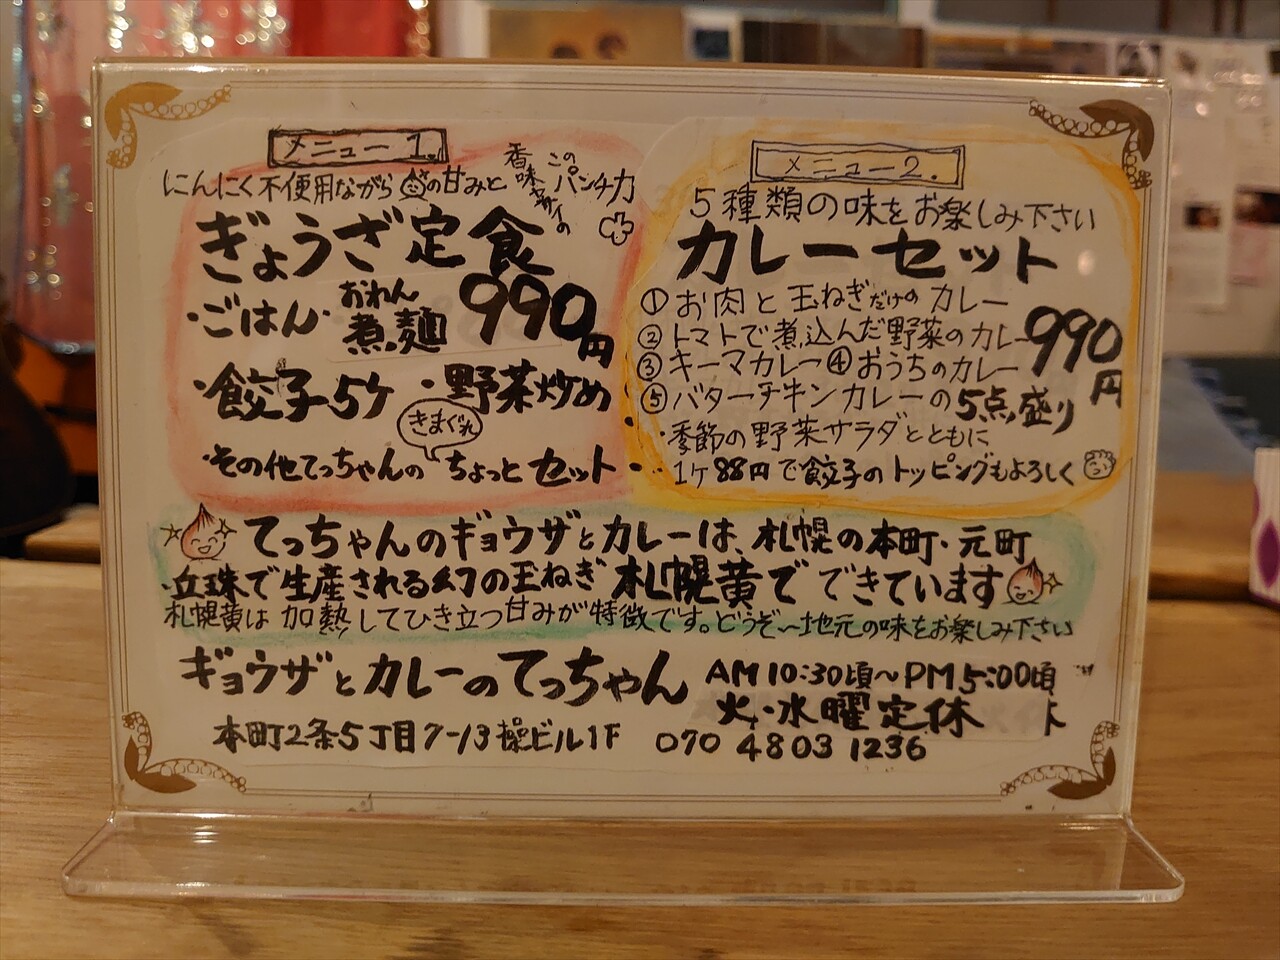 メニュー1.
にんにく不使用ながら の甘みと香味ヤサイのこのパンチ力
ぎょうざ定食
・ごはん・煮麺 990円
おれん
・餃子5ケ ・野菜炒め
きまぐれ
・その他てっちゃんのちょっとセット
メニュー2.
5種類の味をお楽しみ下さい
カレーセット
①お肉と玉ねぎだけのカレー
②トマトで煮込んだ野菜のカレー
990円
③キーマカレー④おうちのカレー
⑤バターチキンカレーの5点盛り
・季節の野菜サラダとともに
1ケ88円で餃子のトッピングもよろしく
てっちゃんのギョウザとカレーは、札幌の本町・元町
・丘珠で生産される幻の玉ねぎ札幌黄でできています
札幌黄は加熱してひき立つ甘みが特徴です。どうぞ〜地元の味をお楽しみ下さい
ギョウザとカレーのてっちゃん AM10:30頃〜PM5:00頃
火・水曜定休
本町2条5丁目7-13操ビル1F 070 4803 1236